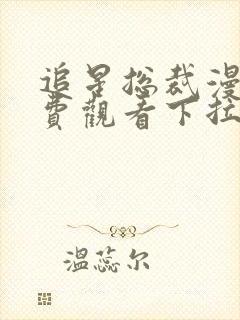 追星总裁漫
費觀看下拉
溫蕊尔